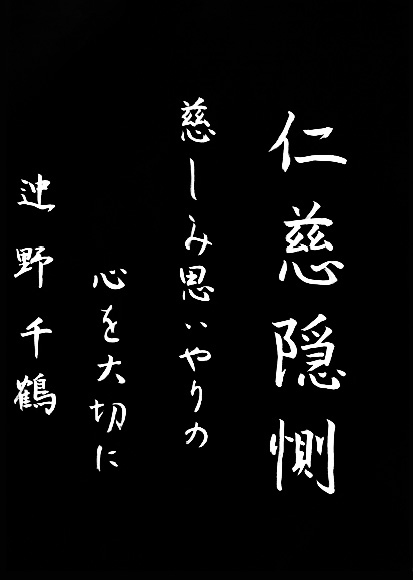 仁慈隠惻
慈しみ思いやりの
心を大切に
辻野千鶴